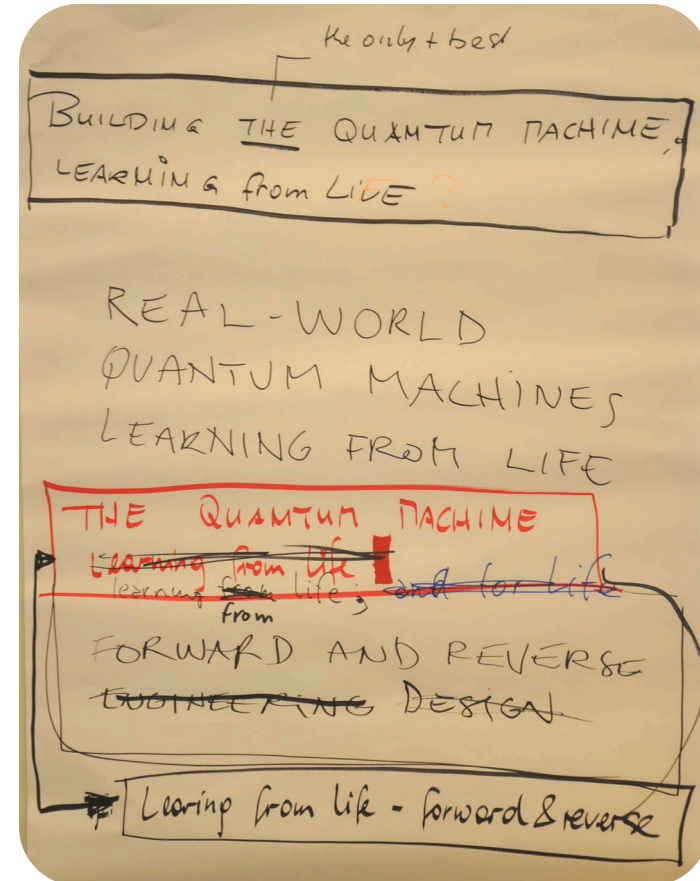 the only + best
BUILDING THE QUANTUM MACHINE,
LEARNING from LIFE ?
REAL-WORLD
QUANTUM MACHINES
LEARNING FROM LIFE
THE QUANTUM MACHINE
Learning from life
learning from life; and for Life
from
FORWARD AND REVERSE
ENGINEERING DESIGN
Learing from life - forward & reverse